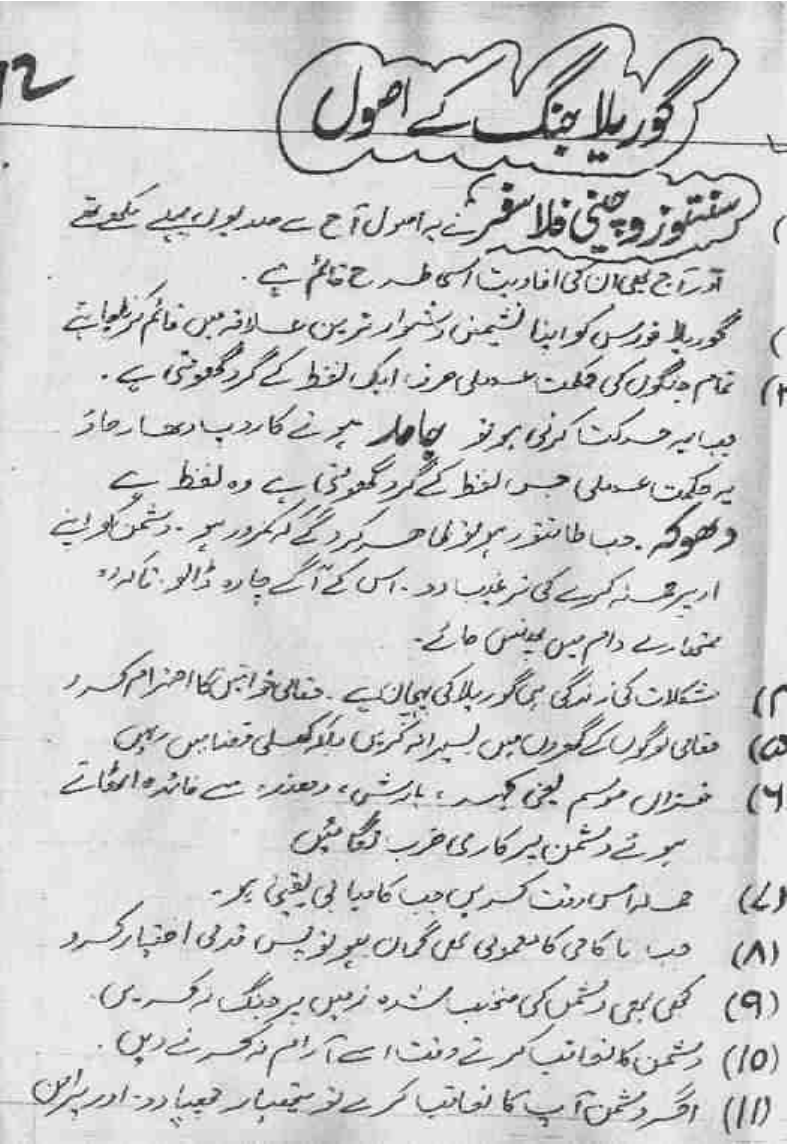 12
گوریلا جنگ کے اصول
سنتزو چینی فلاسفر نے یہ اصول آج سے صدیوں پہلے لکھے تھے
اور آج بھی ان کی افادیت اسی طرح قائم ہے۔
گوریلا فورس کو اپنا نشیمن دشوار ترین علاقہ میں قائم کرنا چاہئے
(۳ تمام جنگوں کی حکمت عملی صرف ایک لفظ کے گرد گھومتی ہے۔
جب حرکت کرنی ہو تو جامد ہونے کا روپ دھار جاؤ
یہ حکمت عملی جس لفظ کے گرد گھومتی ہے وہ لفظ ہے
دھوکہ۔ جب طاقتور ہو تو ظاہر کرو گے کہ کمزور ہو۔ دشمن کو اپنے
اوپر حملہ کرنے کی ترغیب دو۔ اس کے آگے چارہ ڈالو۔ تاکہ وہ
تمھارے دام میں پھنس جائے۔
(۴ مشکلات کی زندگی ہی گوریلا کی پہچان ہے۔ مقامی خواتین کا احترام کرو
(۵ مقامی لوگوں کے گھروں میں بسیرا نہ کریں بلکہ کھلی فضا میں رہیں
(۶ خزاں موسم یعنی کہر، بارش، دھند، سے فائدہ اٹھاتے
ہوئے دشمن پر کاری ضرب لگائیں
(۷) حملہ اس وقت کریں جب کامیابی یقینی ہو۔
(۸) جب ناکامی کا معمولی بھی گمان ہو تو پس قدمی اختیار کرو
(۹) کبھی بھی دشمن کی منتخب شدہ زمین پر جنگ نہ کریں۔
(۱۰) دشمن کا تعاقب کرتے وقت اسے آرام نہ کرنے دیں۔
(۱۱) اگر دشمن آپ کا تعاقب کرے تو ہتھیار چھپا دو۔ اور پرامن